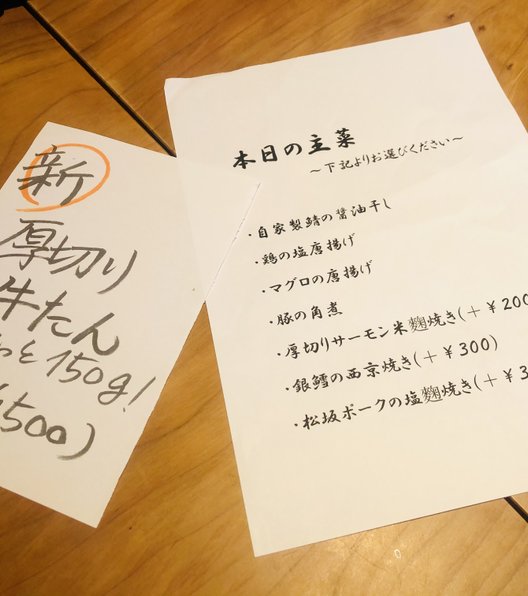 新
厚切り
牛たん
150g!
500)
本日の主菜
～下記よりお選びください～
・自家製鯖の醤油干し
・鶏の塩唐揚げ
・マグロの唐揚げ
・豚の角煮
・厚切りサーモン米麹焼き(＋￥200
・銀鱈の西京焼き(＋￥300)
・松坂ポークの塩麹焼き(＋￥3